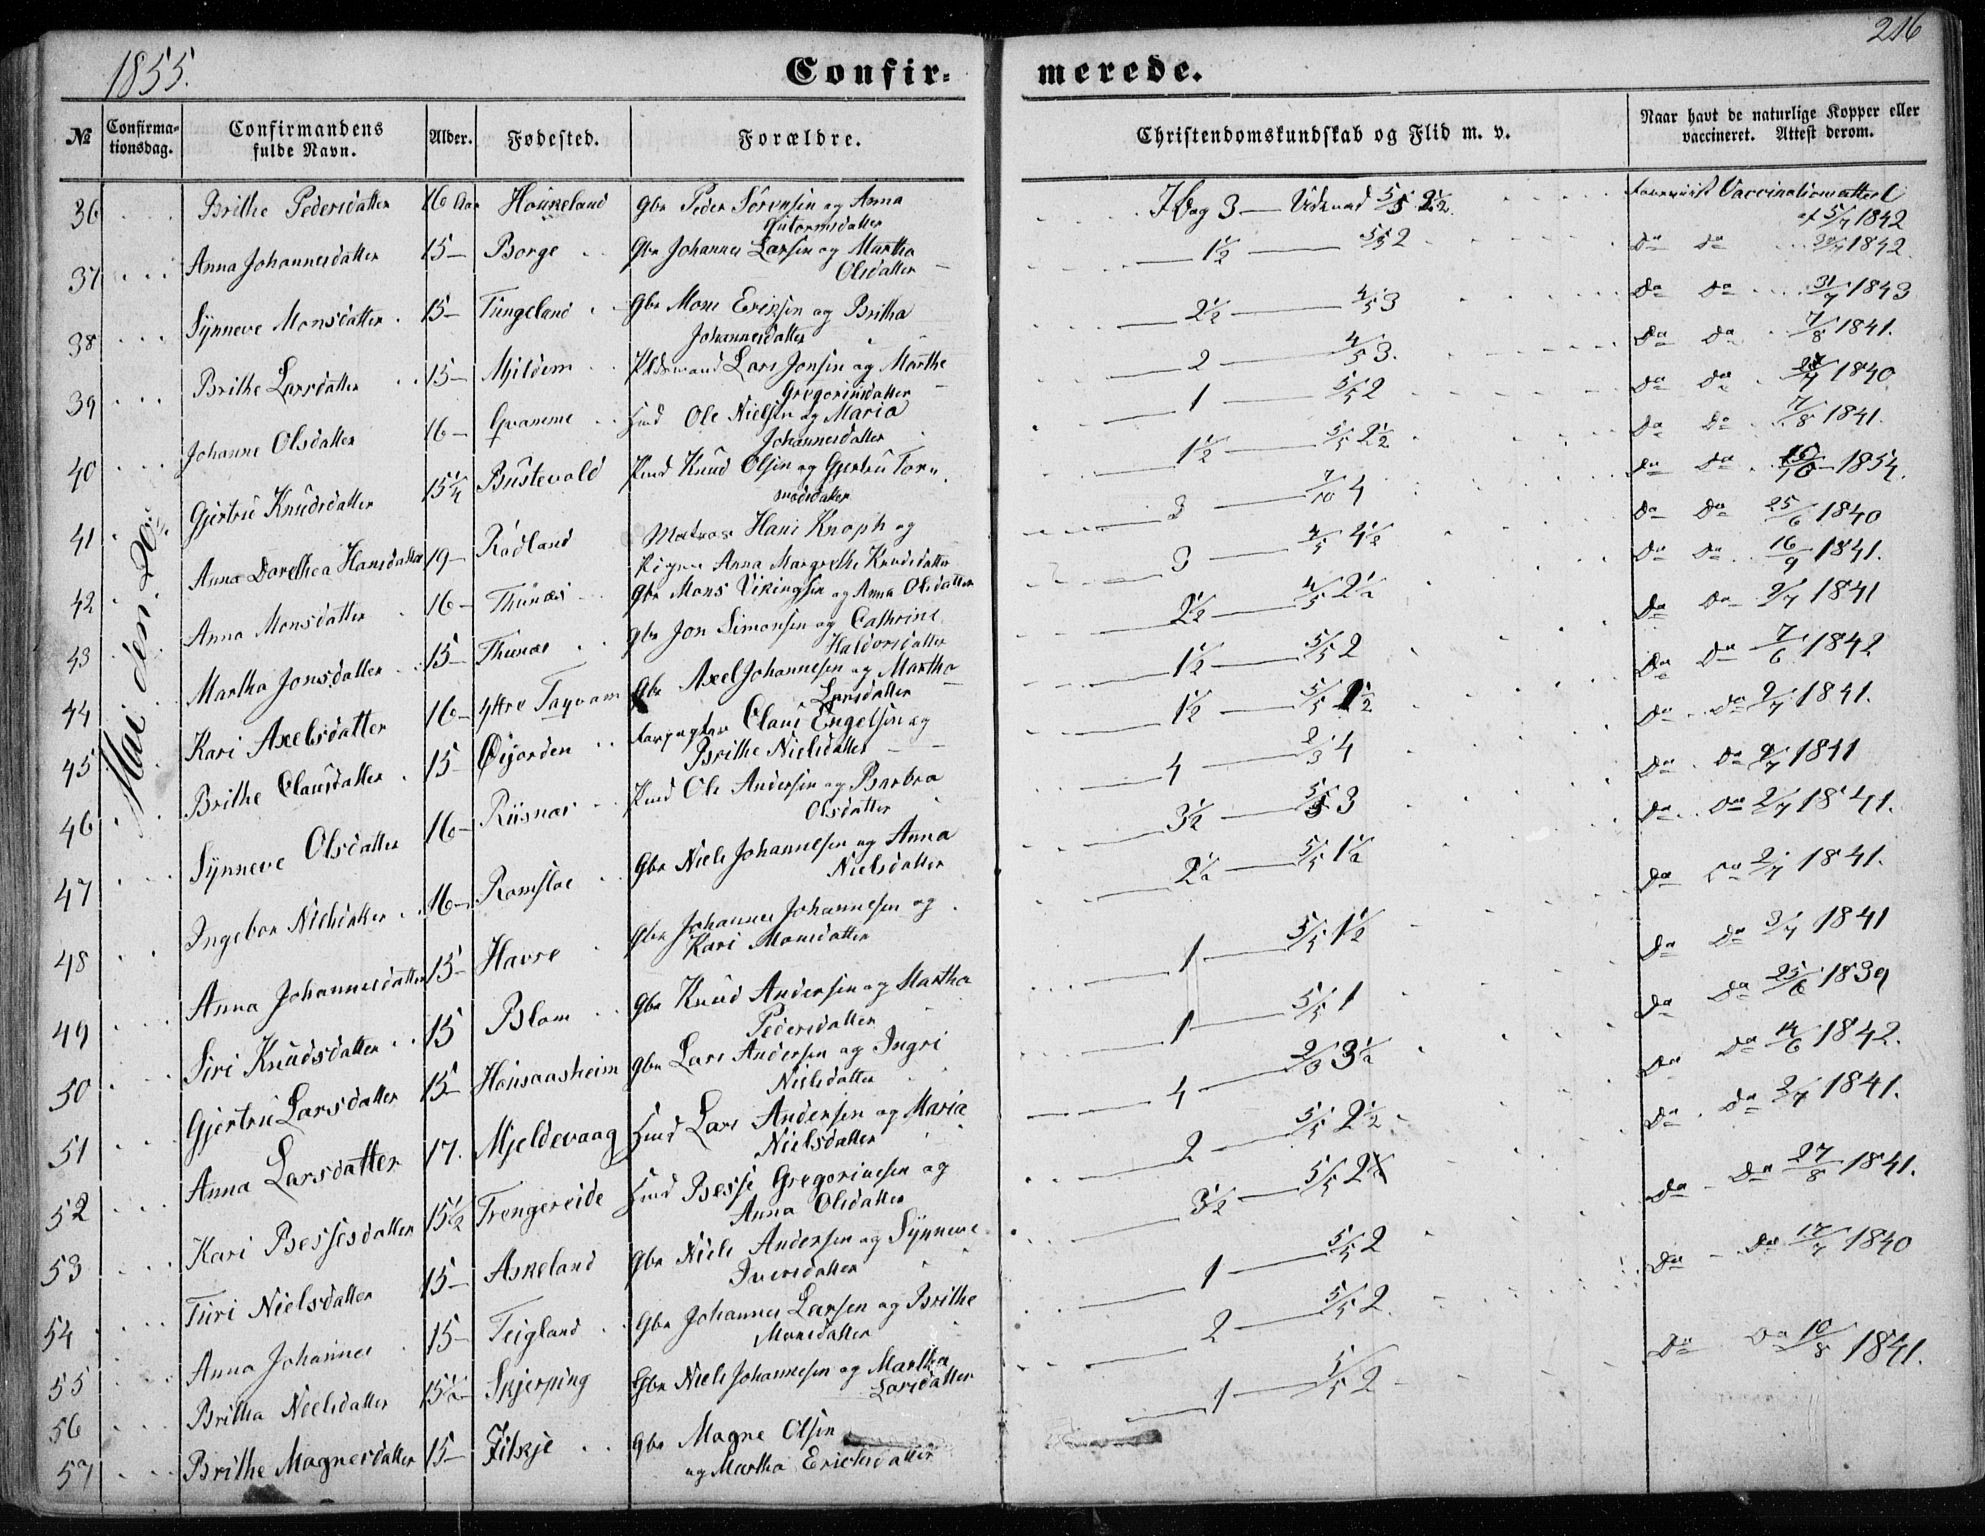 216
1855.
Confir-
merede.
№
Confirma-
tionsdag.
Confirmandens
fulde Navn.
Alder.
Fødested.
Forældre.
Christendomskundskab og Flid m. v.
Naar havt de naturlige Kopper eller
vaccineret. Attest derom.
Mai den 20
36 Brithe Pedersdatter 16 Aar Houkeland Gbr Peder Sörensen og Anna
Gutormsdatter
3 5/5 2½ Vaccinationsattest
af 5/7 1842
37 Anna Johannesdatter 15 Borge Gbr Johannes Larsen og Martha
Olsdatter
1½ 5/5 2 Do Do 1842
38 Synneve Monsdatter 15 Tungeland Gbr Mons Eriksen og Britha
Johannesdatter
2½ 4/5 3 Do Do 31/7 1843
39 Brithe Larsdatter 15 Mjeldem Lars Jonsen og Marthe
Gregoriusdatter
2 4/5 3 Do Do 7/8 1841
40 Johanne Olsdatter 16 Gvamme Ole Nielsen og Maria
Johannesdatter
1 5/5 2 Do Do 1840
41 Gjertru Knudsdatter 15¼ Bustevold Knud Olsen og Gjertru Tor-
modsdatter
1½ 5/5 2½ Do Do 7/8 1841
42 Anna Dorethea Hansdatter 19 Rödland Matros Hans Knoph og
Pigen Anna Margrethe Knudsdatter
3 7/10 4 Do Do 1854
43 Anna Monsdatter 16 Thunæs Gbr Mons Vikingsen og Anna Olsdatter
3 4/5 4½ Do Do 25/6 1840
44 Martha Jonsdatter 15 Thunæs Gbr Jon Simonsen og Cathrine
Haldorsdatter
2½ 4/5 2½ Do Do 16/9 1841
45 Kari Axelsdatter 16 Yttre Tayvam Gbr Axel Johannesen og Martha
Larsdatter
1½ 5/5 2 Do Do 2/7 1841
46 Brithe Clausdatter 15 Öyjorden Claus Engelsen og
Brithe Nielsdatter
1½ 5/5 1½ Do Do 7/6 1842
47 Synneve Olsdatter 16 Riisnæs Ole Andersen og Barbra
Olsdatter
4 2/3 4 Do Do 2/7 1841
48 Ingebor Nielsdatter 16 Romsloe Gbr Niels Johannesen og Anna
Nielsdatter
3½ 5/5 3 Do Do 2/7 1841
49 Anna Johannesdatter 15 Havre Gbr Johannes Johannesen og
Kari Monsdatter
2½ 5/5 1½ Do Do 2/7 1841
50 Siri Knudsdatter 15 Blom Gbr Knud Andersen og Martha
Pedersdatter
1 5/5 1½ Do Do 2/7 1841
51 Gjertru Larsdatter 15 Housaasheim Gbr Lars Andersen og Ingri
Nielsdatter
1 5/5 1 Do Do 3/7 1841
52 Anna Larsdatter 17 Mjeldevaag Lars Andersen og Maria
Nielsdatter
4 3½ Do Do 25/6 1839
53 Kari Bessesdatter 15½ Trengereide Besse Gregoriusen og
Anna Olsdatter
2 5/5 2½ Do Do 14/6 1842
54 Turi Nielsdatter 15 Askeland Gbr Niels Andersen og Synneve
Iversdatter
3½ 5/5 2½ Do Do 2/7 1841
55 Anna Johannes 15 Teigland Gbr Johannes Larsen og Brithe
Monsdatter
1 5/5 2 Do Do 27/8 1841
56 Britha Nielsdatter 15½ Skjerping Gbr Niels Johannesen og Martha
Larsdatter
2 5/5 2 Do Do 12/7 1840
57 Brithe Magnesdatter 15 Filskje Gbr Magne Olsen
og Martha Ericksdatter
1 5/5 2 Do Do 10/8 1841